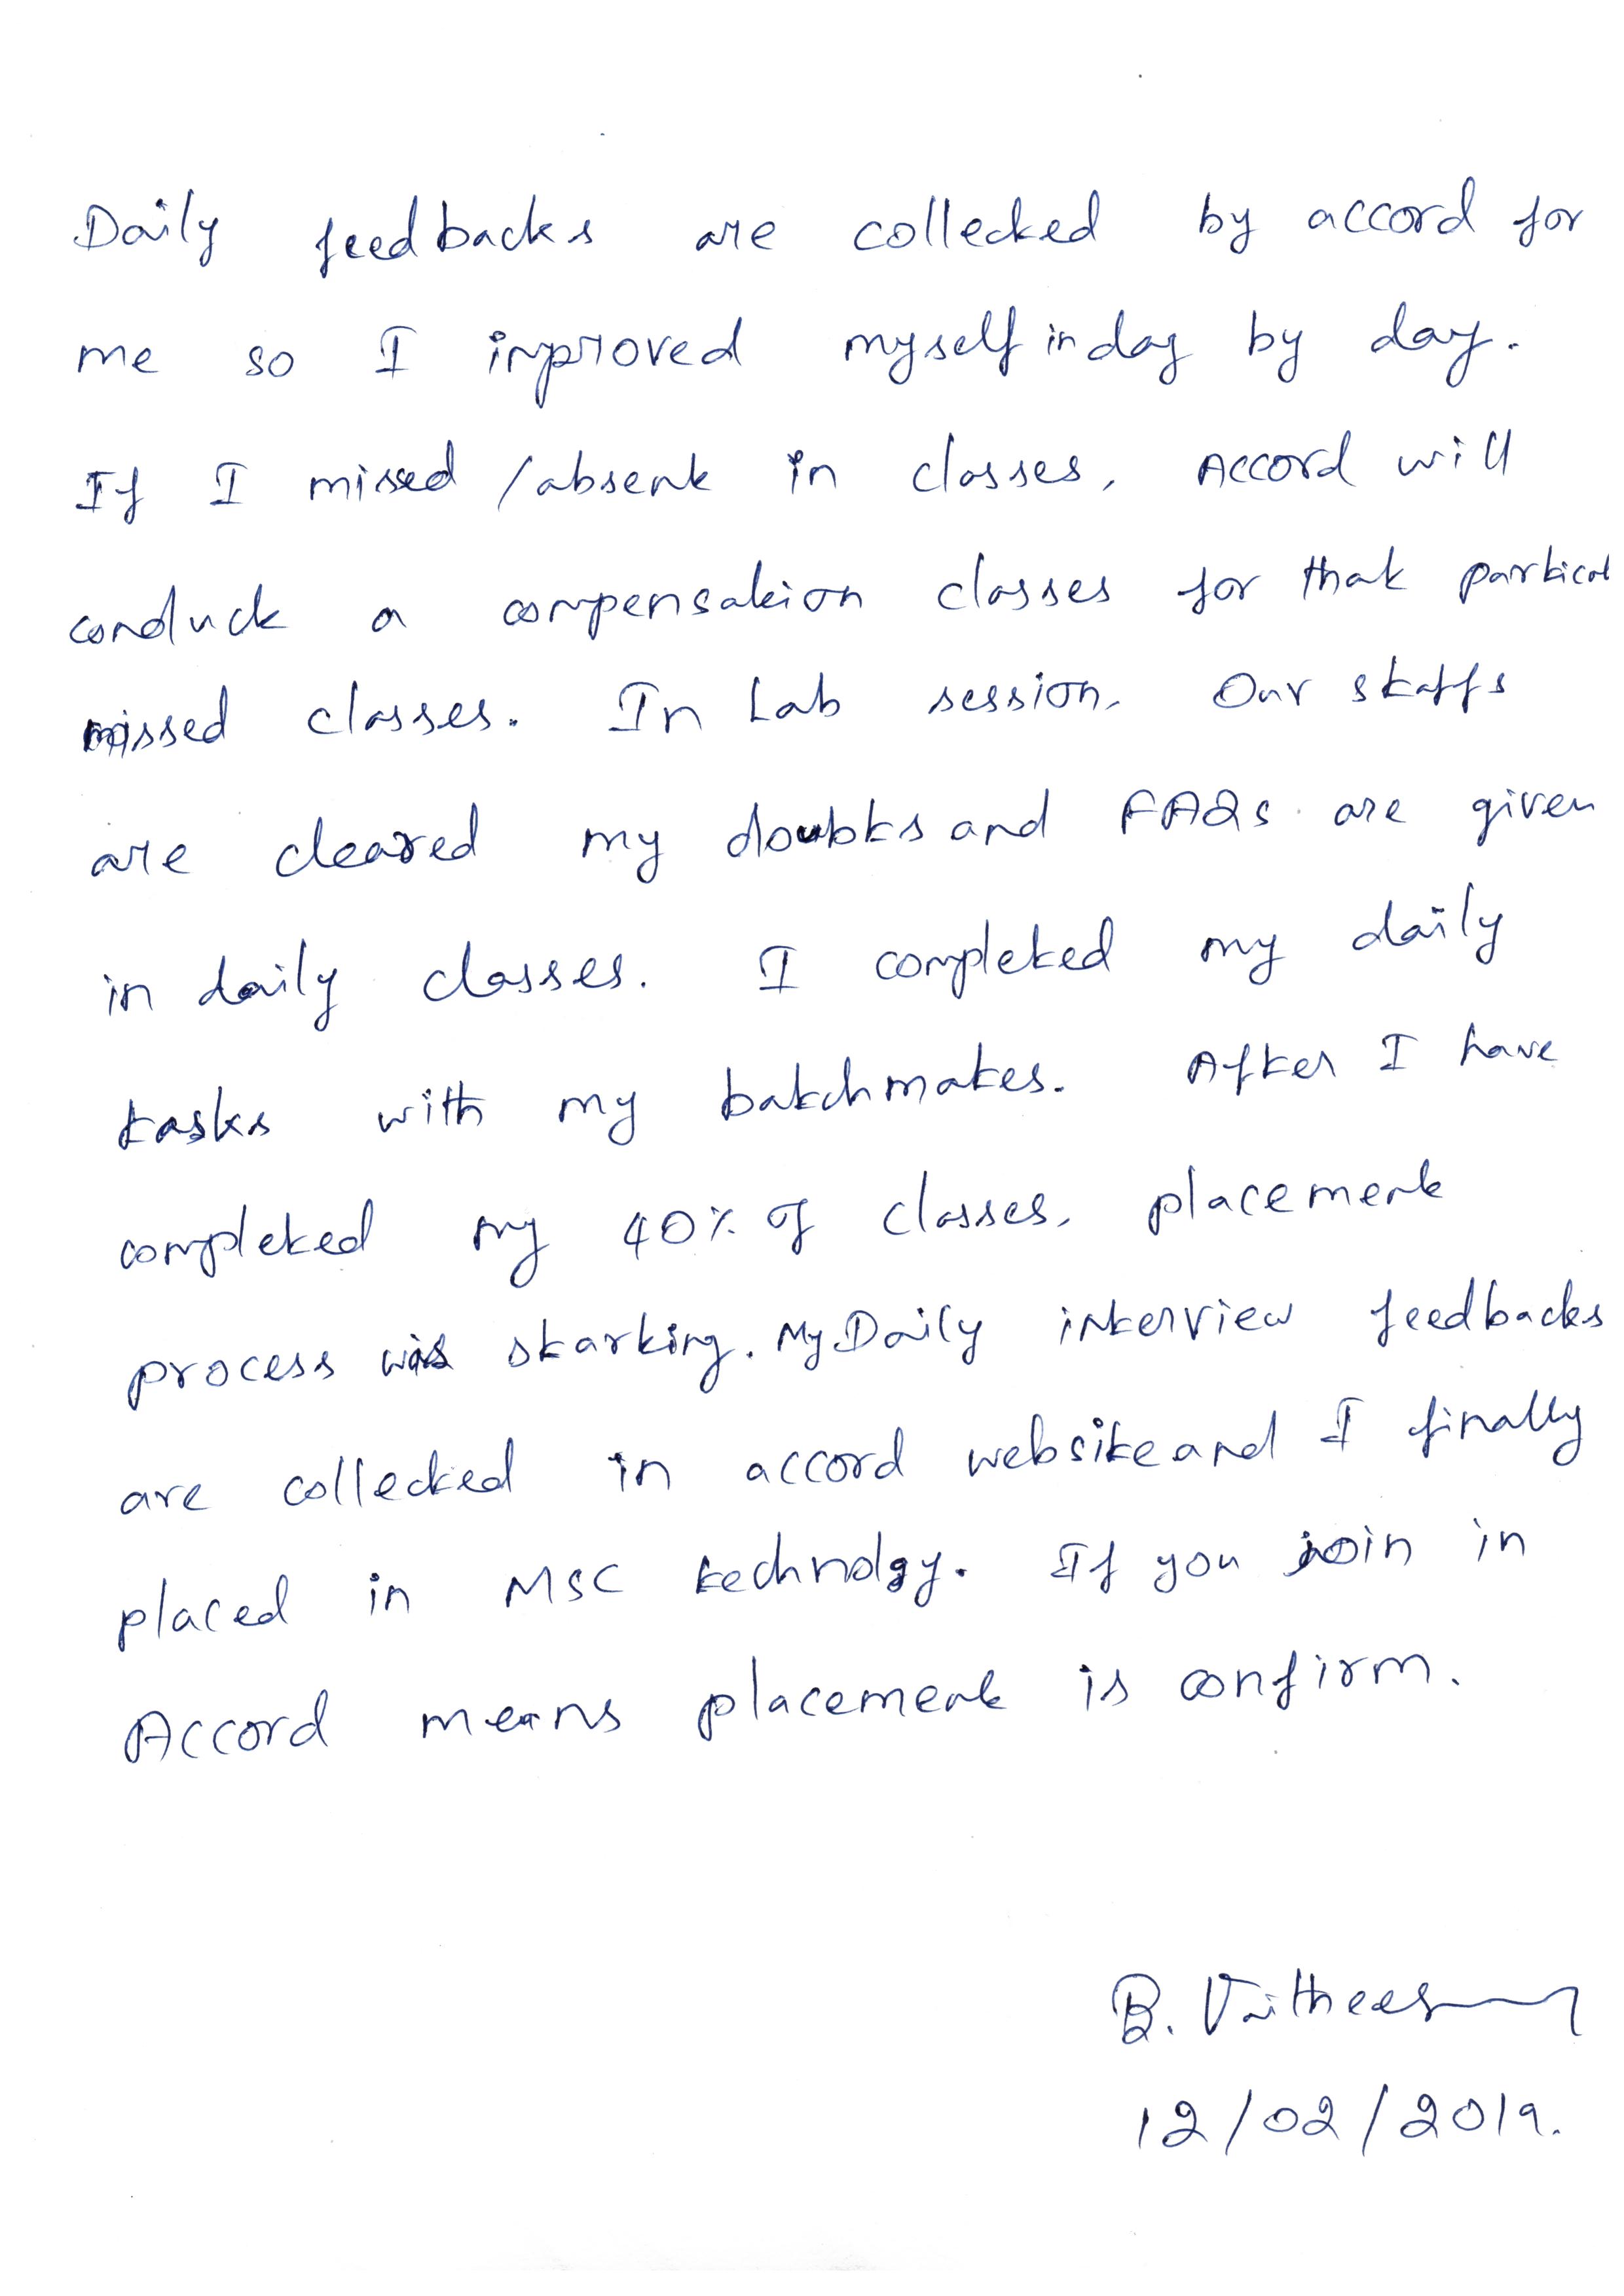 Daily feedbacks are collected by accord for
me so I improved myself in day by day.
If I missed /absent in classes, Accord will
conduct a compensation classes for that particul
missed classes. In Lab session, Our staffs
are cleared my doubts and FAQs are given
in daily classes. I completed my daily
tasks with my batchmates. After I have
completed my 40% of classes, placement
process was starting. My Daily interview feedbacks
are collected in accord website and I finally
placed in MSC technolgy. If you join in
Accord means placement is confirm.
B.
12/02/2019.